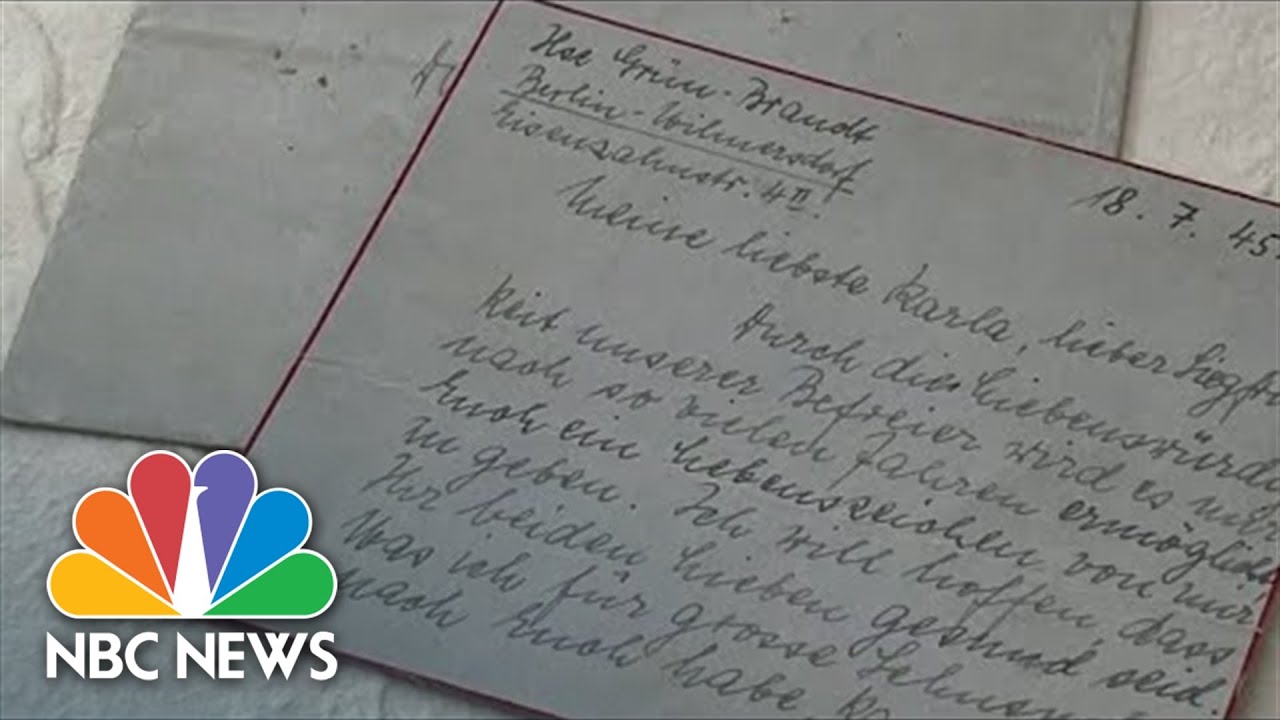 Ilse Grün-Brandt
Berlin-Wilmersdorf
Eisenzahnstr. 4 II.
18. 7. 45
Meine liebste Karla, lieber Siegfr
Durch die Liebenswürdig
keit unserer Befreier wird es mir
nach so vielen Jahren ermöglicht
Euch ein Lebenszeichen von mir
zu geben. Ich will hoffen, dass
Ihr beiden Lieben gesund seid.
Was ich für grosse Sehns
nach Euch habe,
NBC NEWS